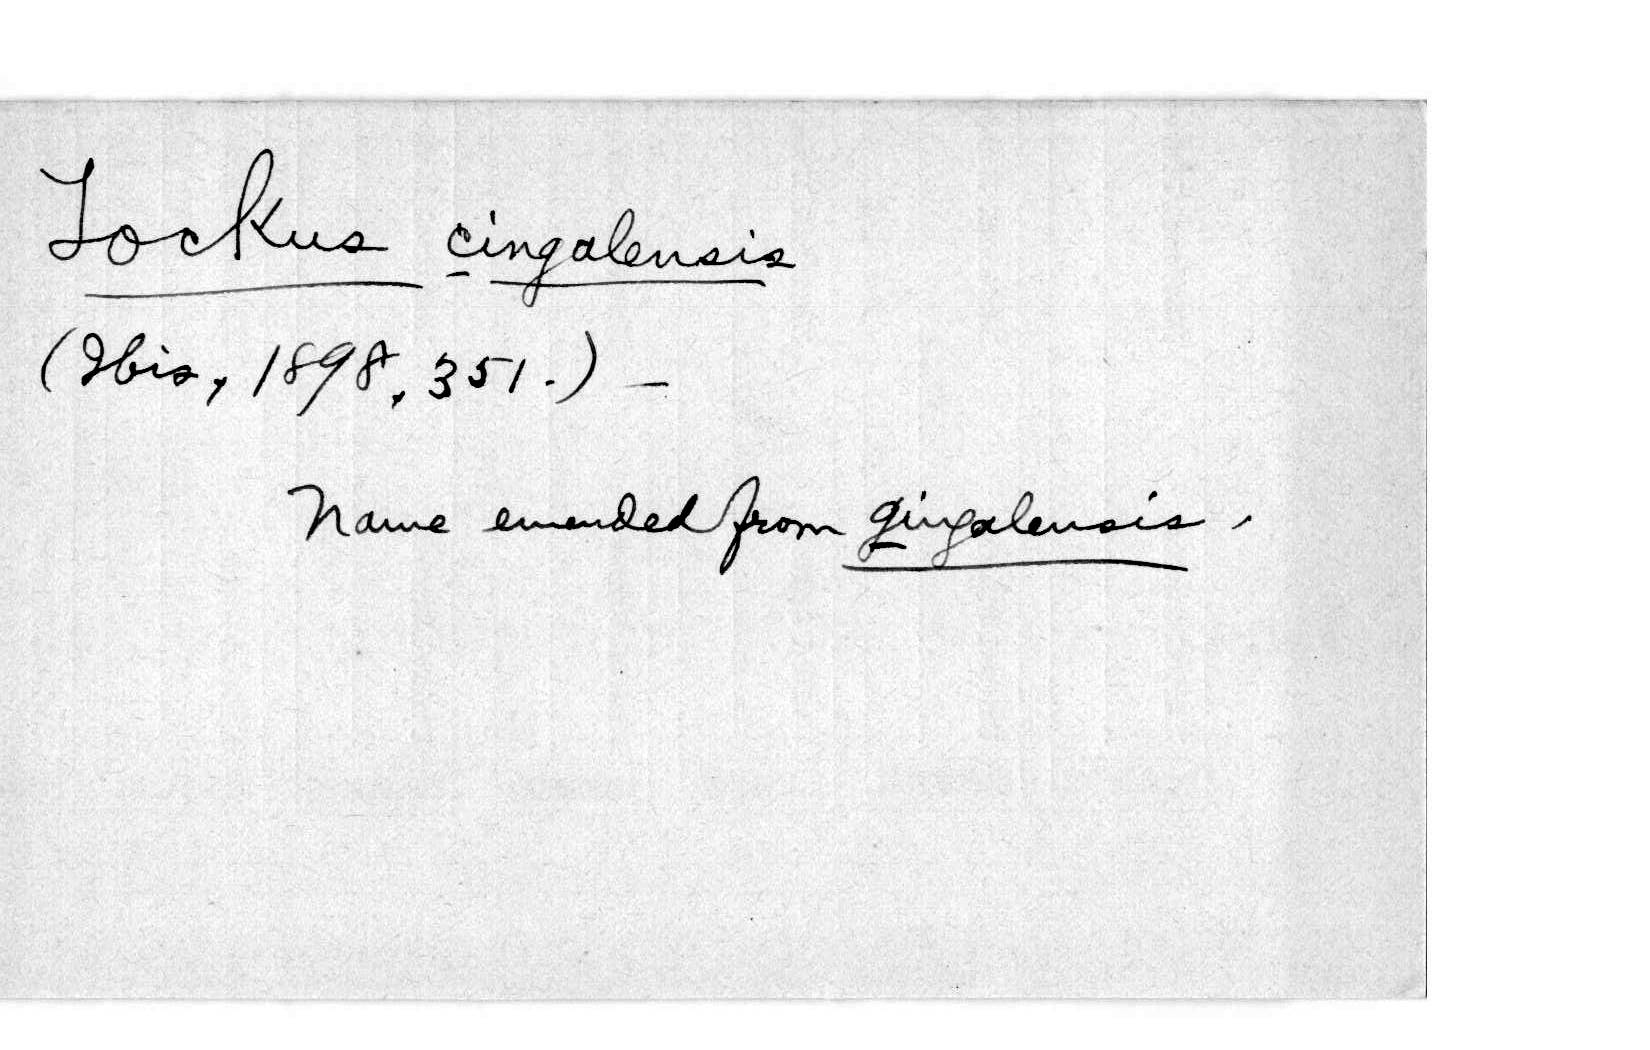 Lockus cingalensis
(Ibis, 1898, 351.) –
Name emended from gingalensis.